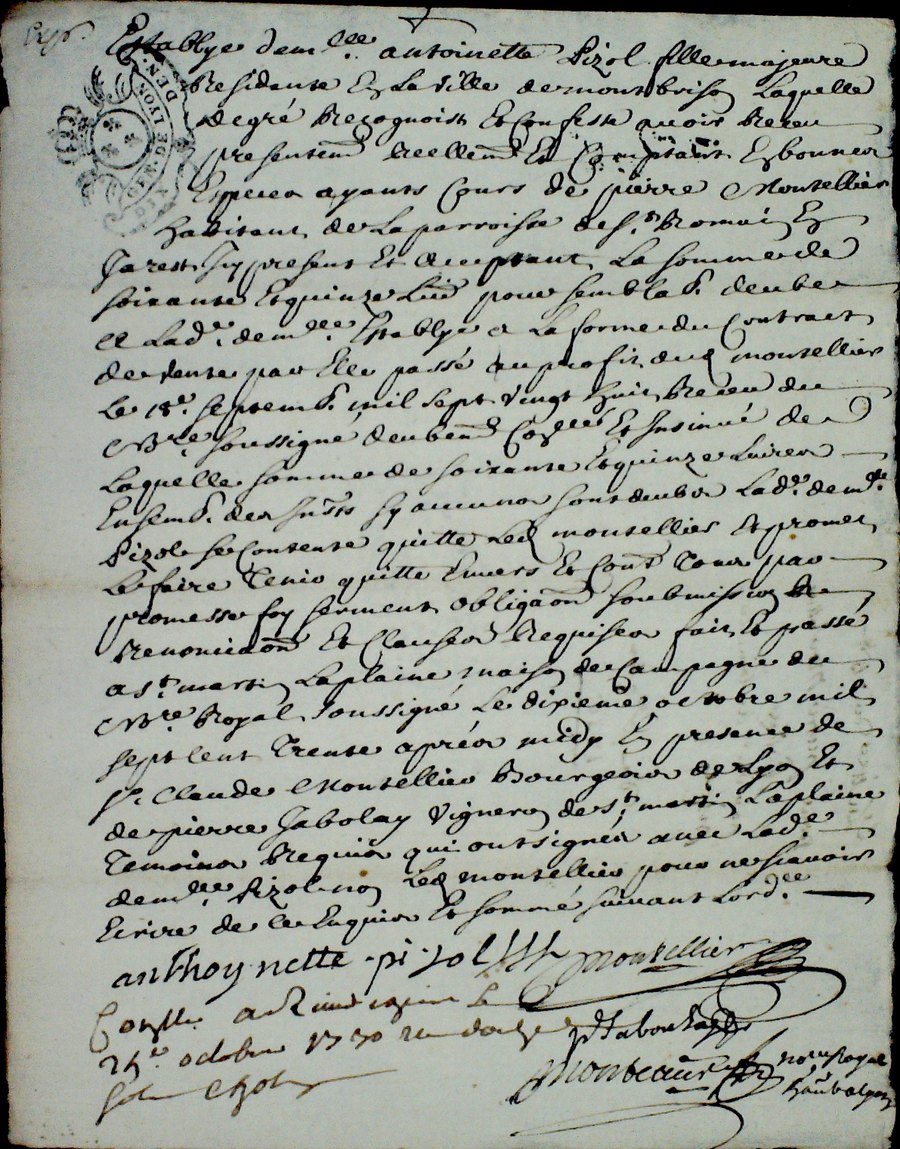 Exp.
Establye dem.lle antoinette Pizol fille majeure
Residante En La Ville de montbrison Laquelle
de gré Recognoist Et Confesse avoir Receu
presentem.t Reellem.t Et Comptant En bonnes
Especes ayants Cours de pierre Montellier
habitant de La parroisse de S.t Romain En
Jarest Icy present Et acceptant La somme de
soixante Et quinze Livres pour semblab. deube
a Lad.e dem.lle Establye a La forme du Contract
de Vente par Elle passé au profit dud montellier
Le 18.e septemb. mil sept Vingt huit Receu du
No.re soussigné deubem.t Con.llé Et Insinué de
Laquelle somme de soixante Et quinze Livres
Ensemb. des Intts sy aucuns sont deubs Lad.e dem.lle
Pizol se Contente quitte Led montellier Et promet
Le faire Tenir quitte Envers Et Cont. Tous par
promesse foy serment obligaon soubmission
Renonciaon Et Clauses Requises fait Et passé
a S.t martin Laplaine maison de Campagne du
No.re Royal soussigné Le dixieme octobre mil
sept Cent Trente apres midy En presence de
S.r Claude Montellier Bourgeois de Lyon Et
de pierre Jaboulay Vigneron de S.t martin Laplaine
Temoins Requis qui ont signés avec Lad.e
dem.lle Pizol non Led montellier pour ne scavoir
Ecrire de ce Enquis Et sommé suivant Lord.ce
anthoynette pizol Montellier
Con.llé a Rivedegier Le
24.e octobre 1730
P Jaboulay
Monteaux no.re Royal
LYON